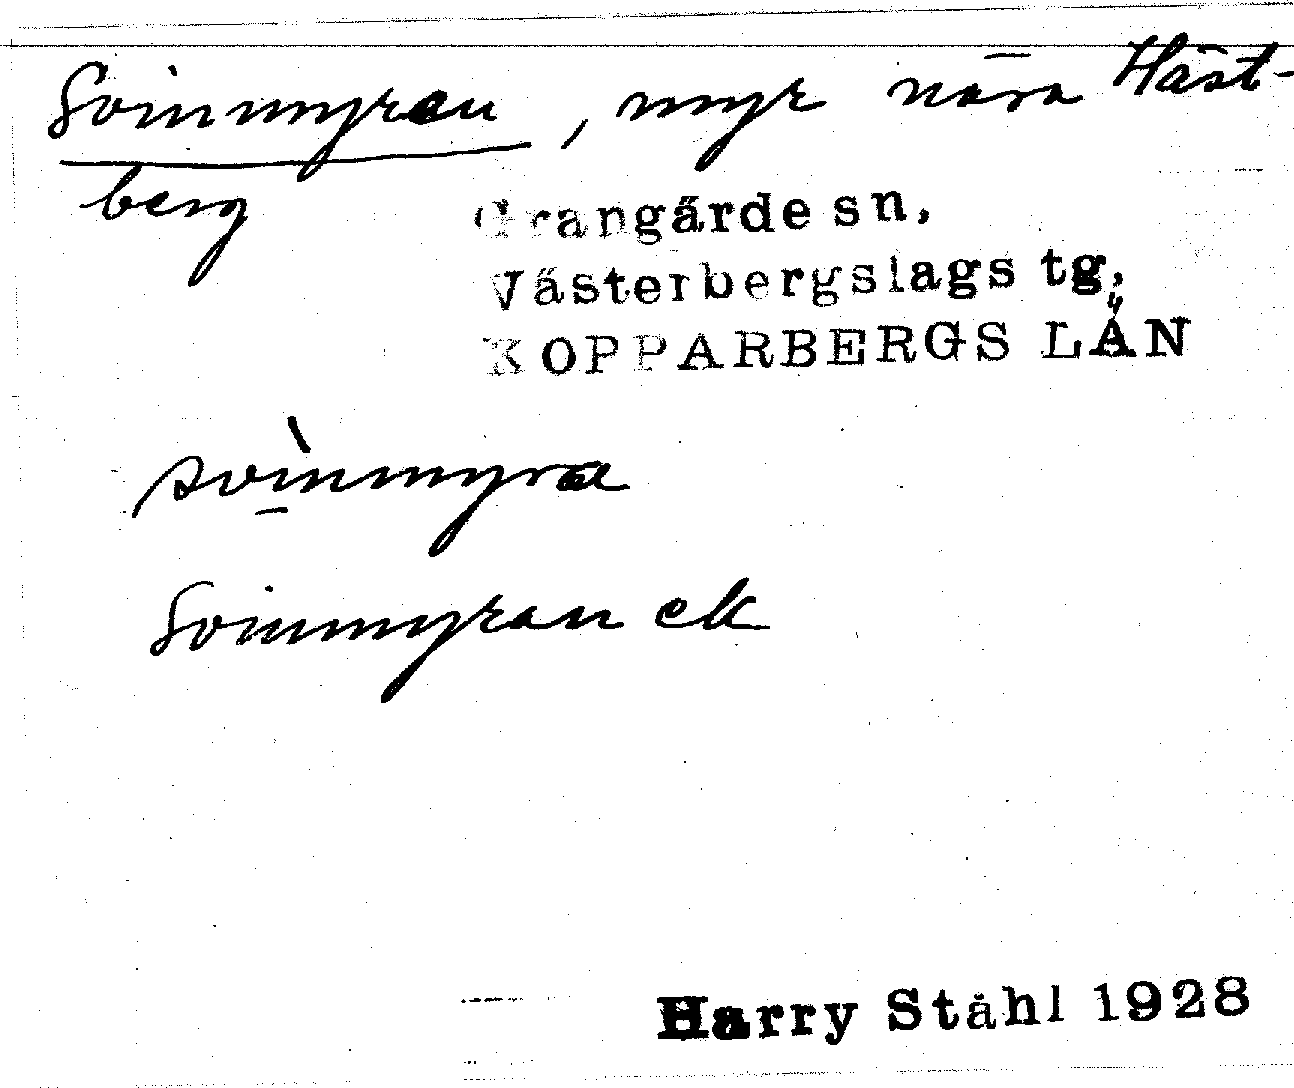 Svinmyran, myr nära Häst-
berg
Grangärde sn,
Västerbergslags tg,
KOPPARBERGS LÄN
svìnmyra
Svinmyran ek
Harry Ståhl 1928